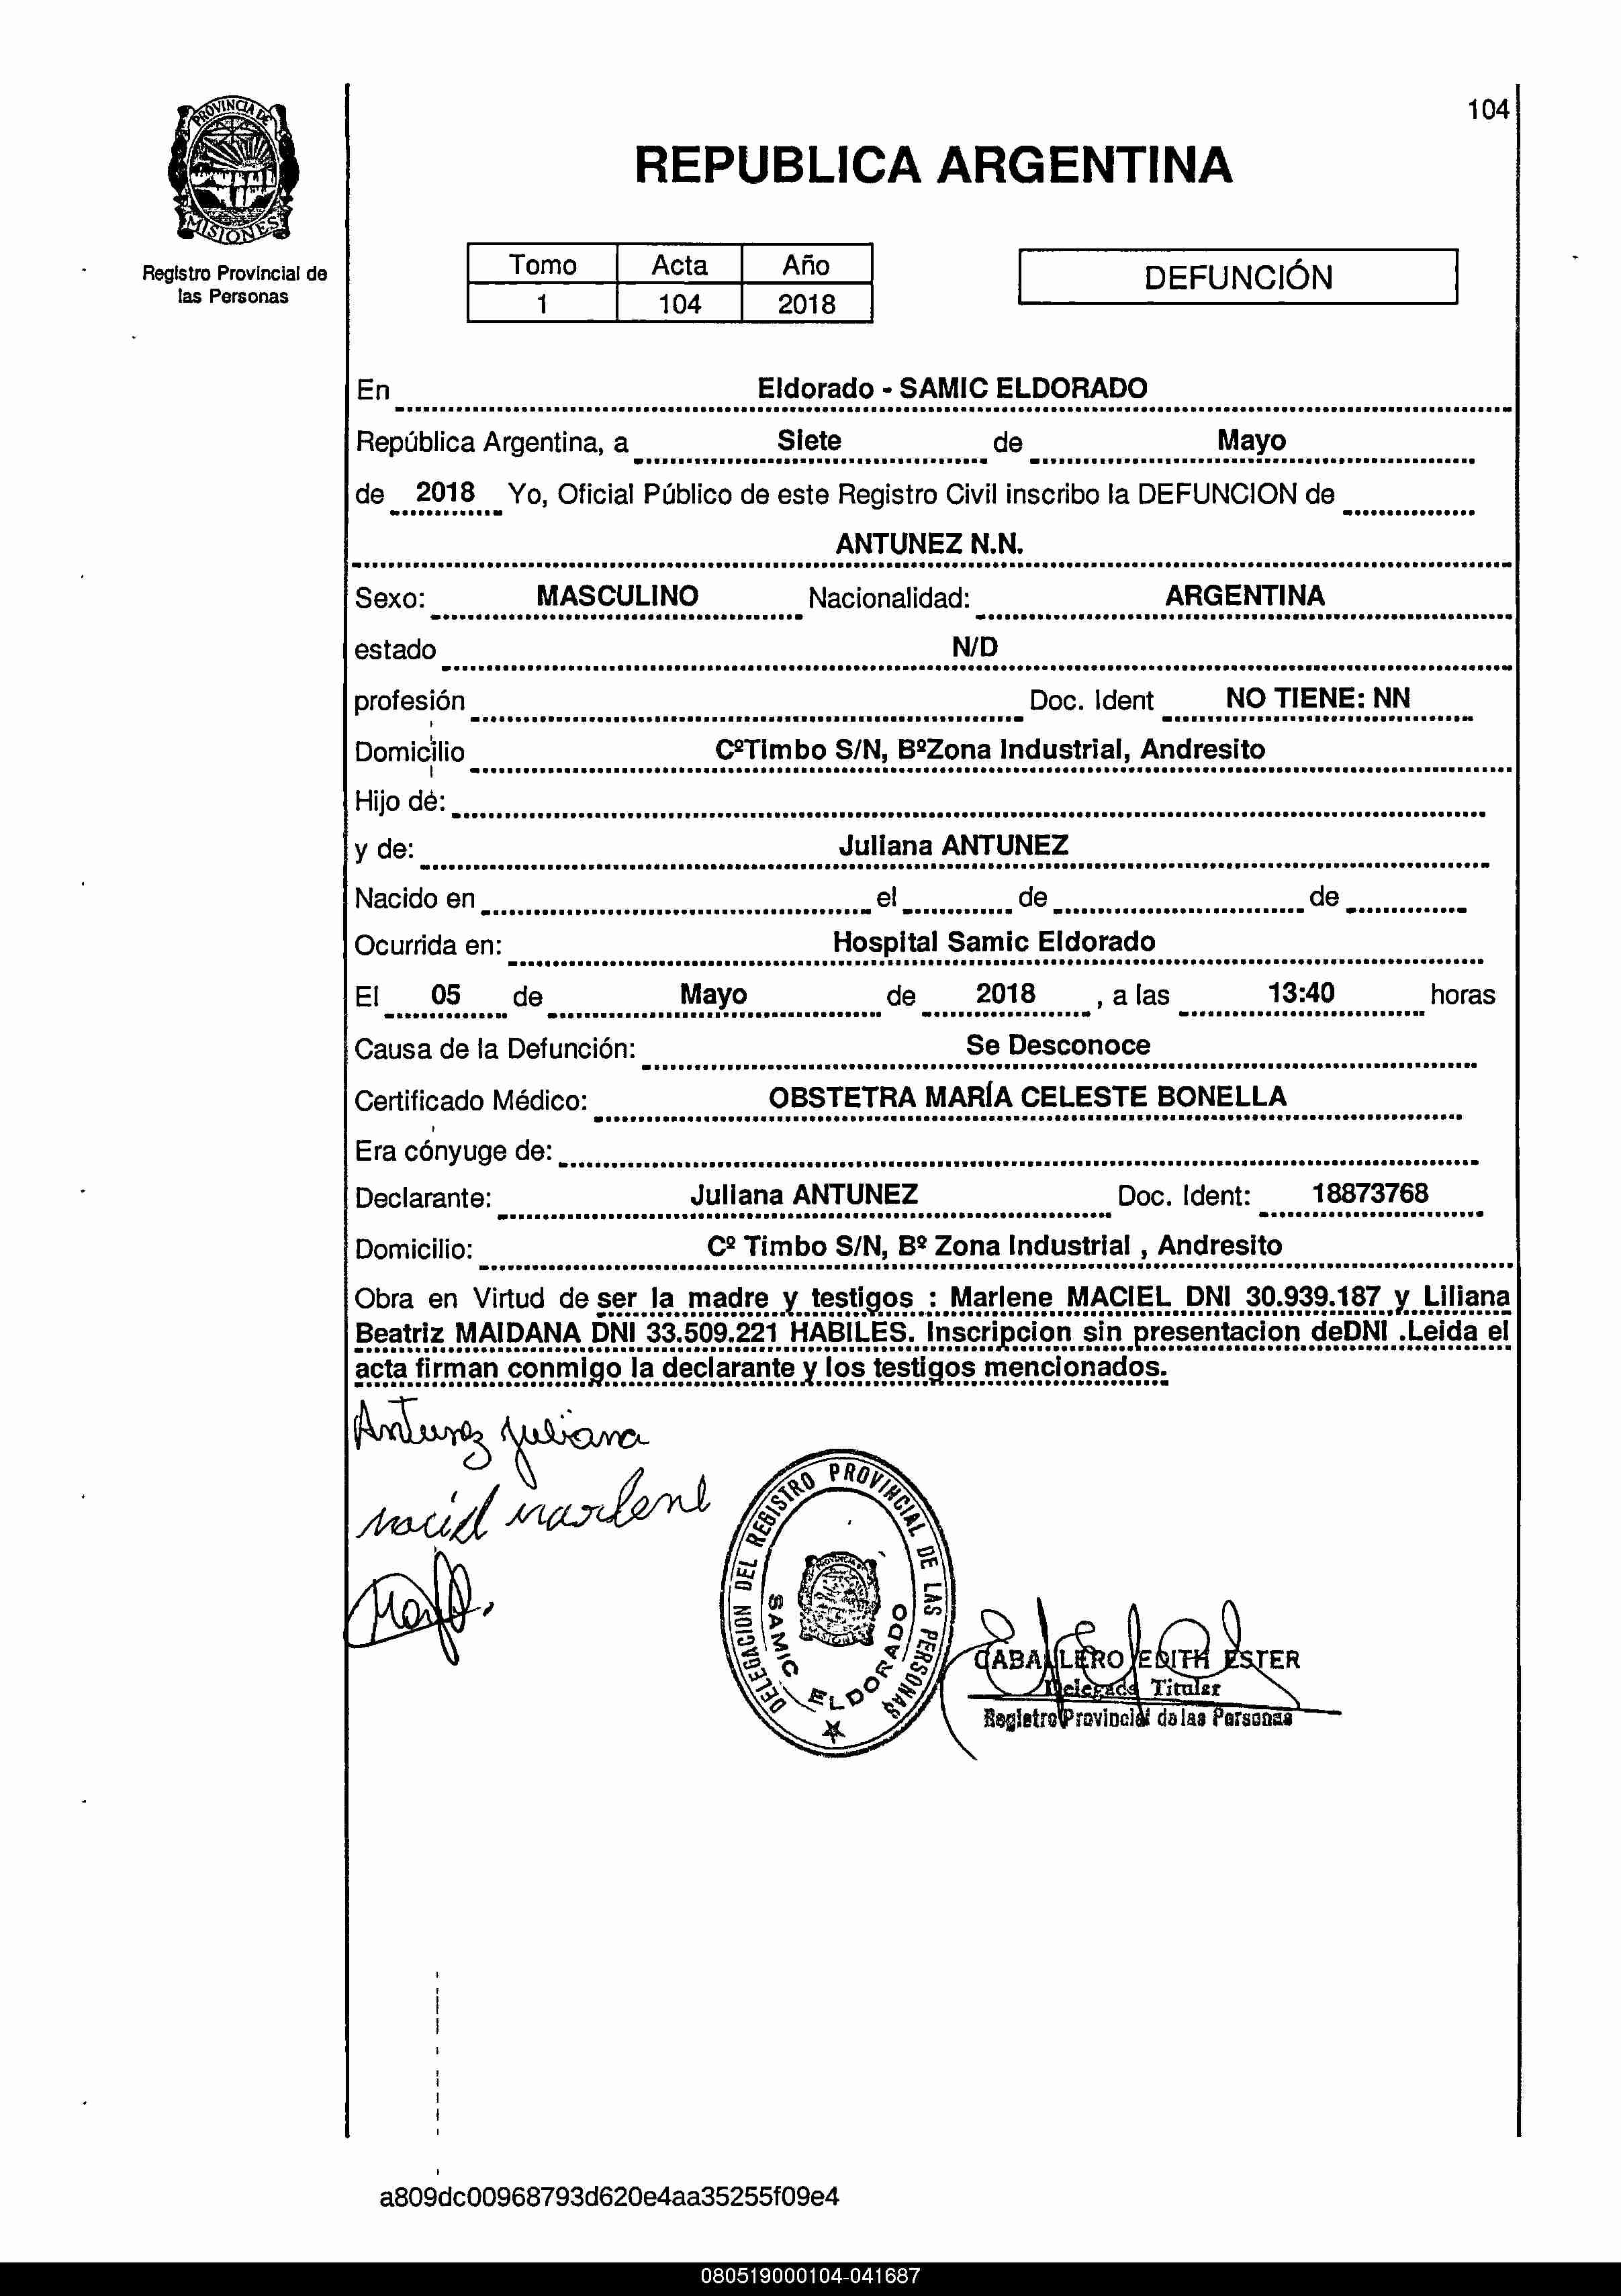 104
PROVINCIA DE
MISIONES
Registro Provincial de
las Personas
REPUBLICA ARGENTINA
Tomo Acta Año
1 104 2018
DEFUNCIÓN
En Eldorado - SAMIC ELDORADO
República Argentina, a Siete de Mayo
de 2018 Yo, Oficial Público de este Registro Civil inscribo la DEFUNCION de
ANTUNEZ N.N.
Sexo: MASCULINO Nacionalidad: ARGENTINA
estado N/D
profesión Doc. Ident NO TIENE: NN
Domicilio CºTimbo S/N, BºZona Industrial, Andresito
Hijo de:
y de: Juliana ANTUNEZ
Nacido en el de de
Ocurrida en: Hospital Samic Eldorado
El 05 de Mayo de 2018 , a las 13:40 horas
Causa de la Defunción: Se Desconoce
Certificado Médico: OBSTETRA MARÍA CELESTE BONELLA
Era cónyuge de:
Declarante: Juliana ANTUNEZ Doc. Ident: 18873768
Domicilio: Cº Timbo S/N, Bº Zona Industrial , Andresito
Obra en Virtud de ser la madre y testigos : Marlene MACIEL DNI 30.939.187 y Liliana
Beatriz MAIDANA DNI 33.509.221 HABILES. Inscripcion sin presentacion deDNI .Leida el
acta firman conmigo la declarante y los testigos mencionados.
Antunez Juliana
Maciel Marlene
DELEGACION DEL REGISTRO PROVINCIAL DE LAS PERSONAS
SAMIC ELDORADO
CABALLERO EDITH ESTER
Delegada Titular
Registro Provincial de las Personas
a809dc00968793d620e4aa35255f09e4
080519000104-041687